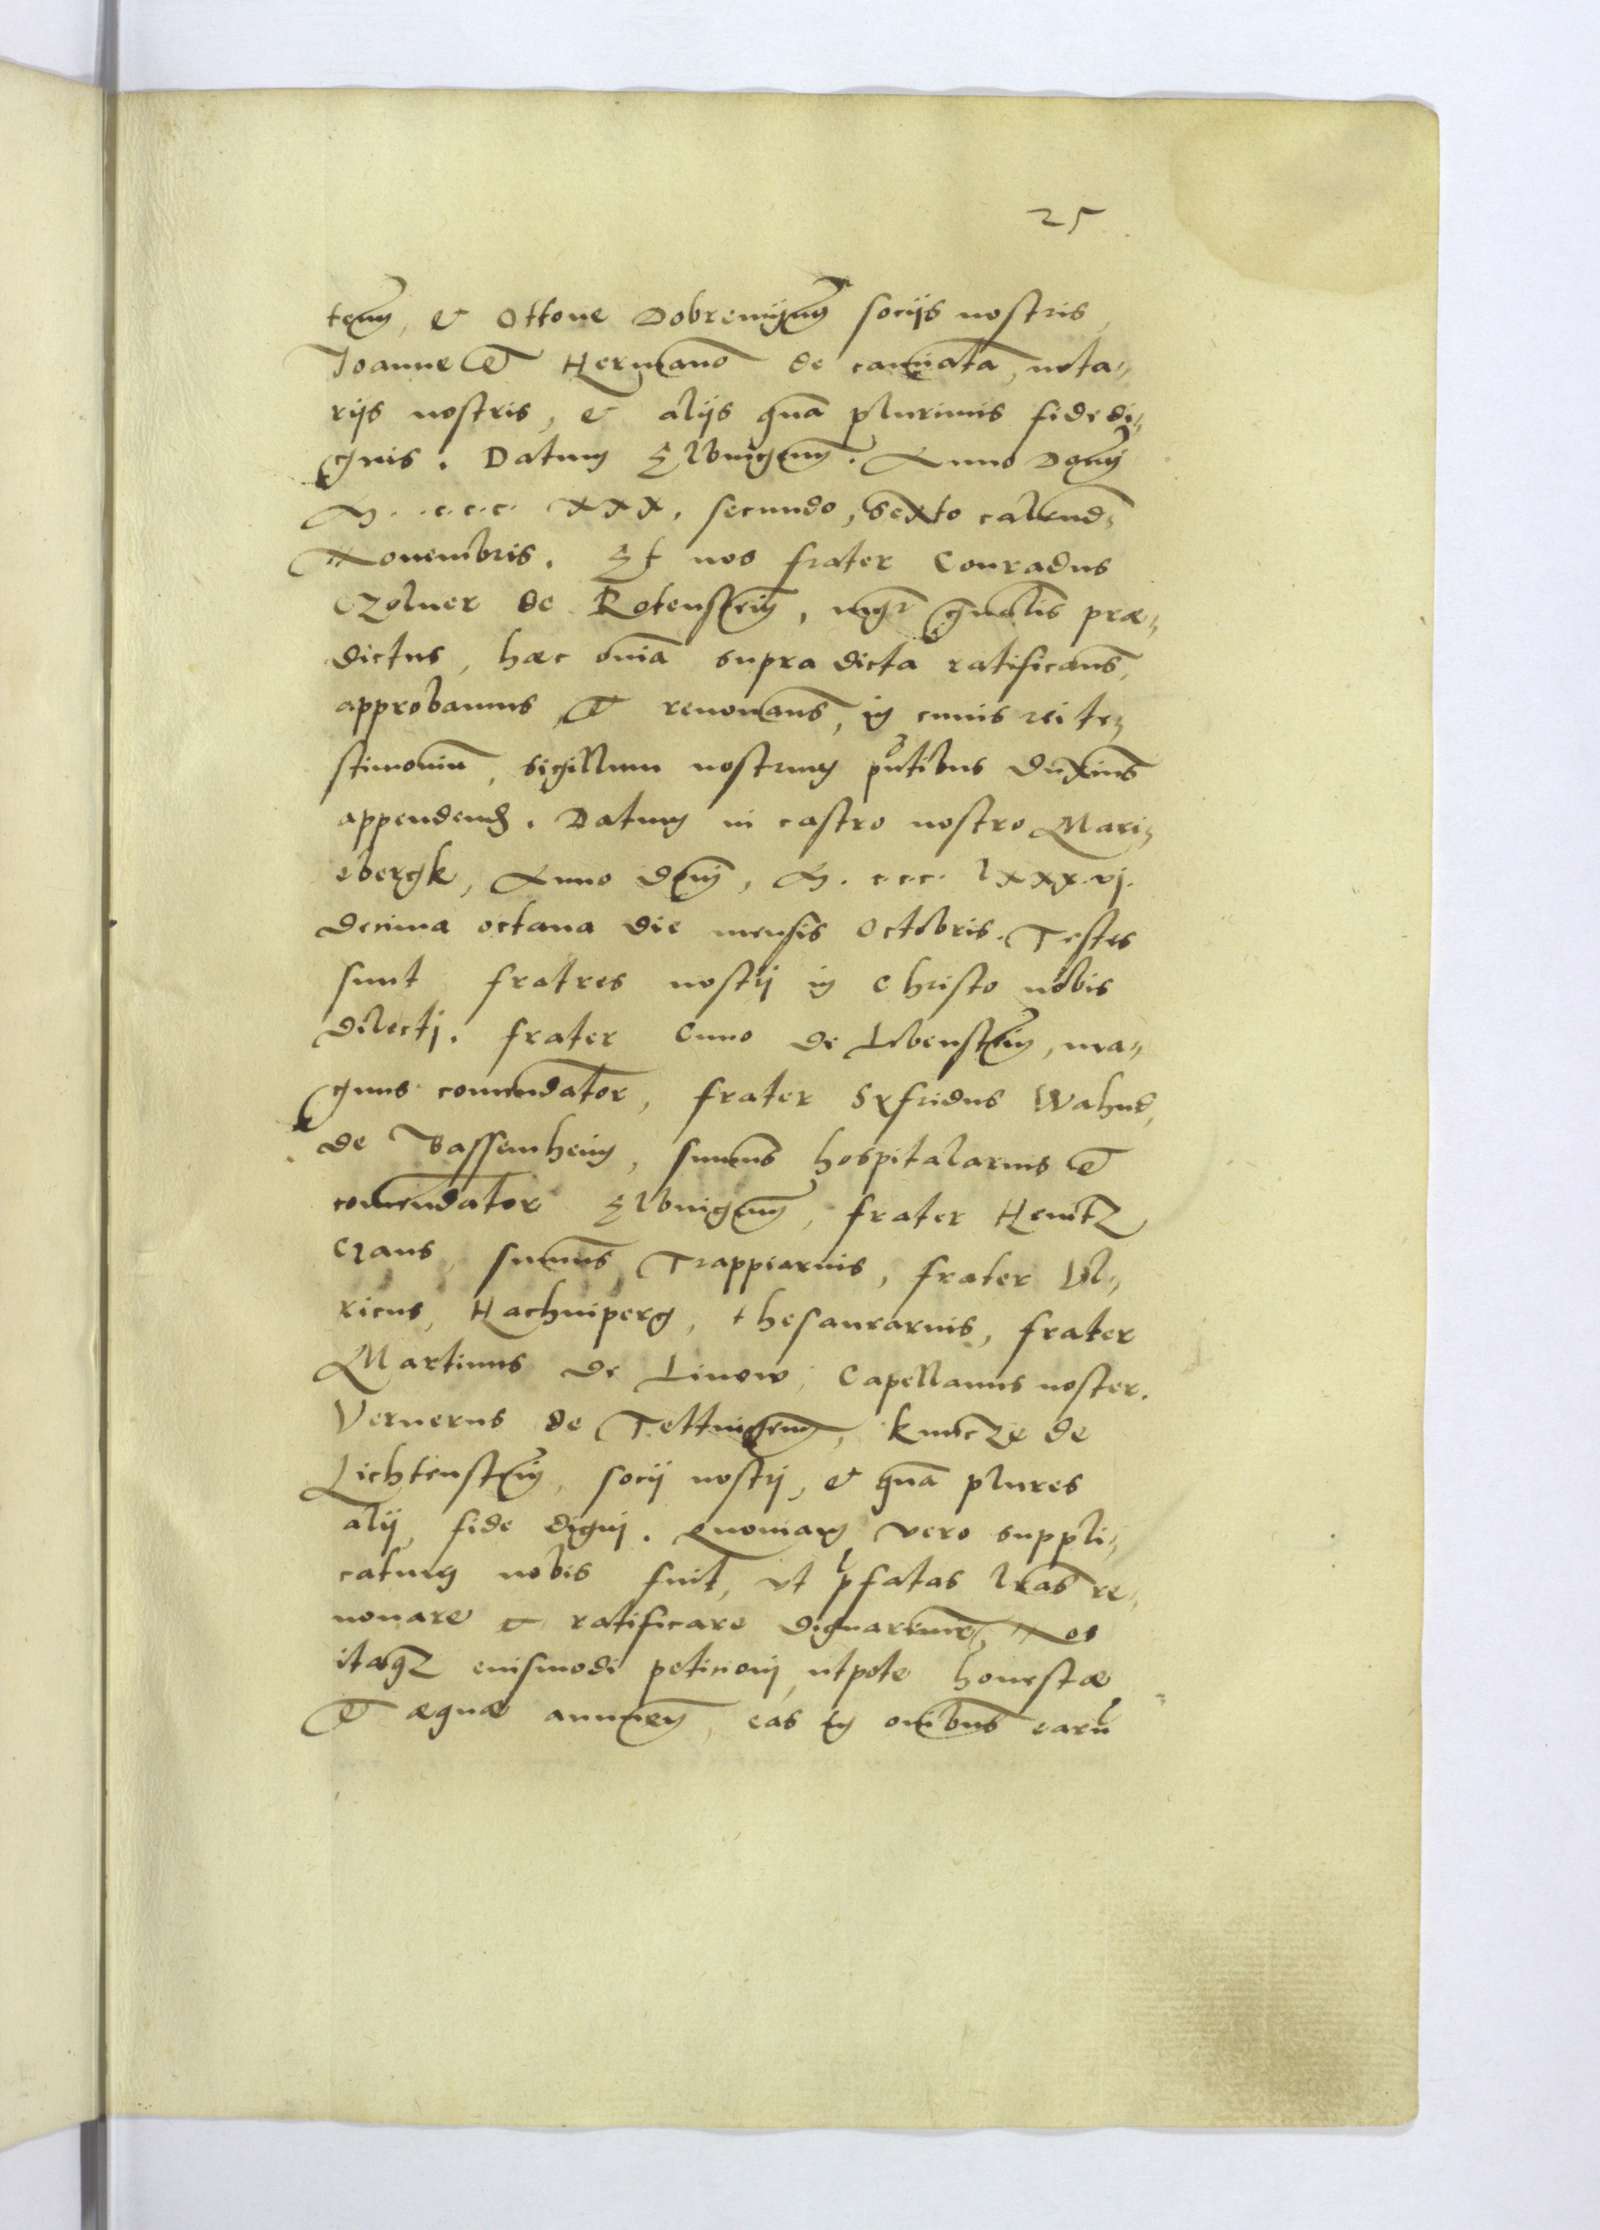 25
tem, & Ottone Dobremijnm̄ socijs nostris,
Joanne & Hermano de camiata, nota⸗
rijs nostris, & alijs qua plurimis fide di⸗
gnis. Datum Elbingem. Anno Domj
M. ccc. XXX. secundo, Sexto calend
Nouembris. Et nos frater Conradus
Czolner de Rotenstein, mgr gnalis præ⸗
dictus, hæc omia supra dicta ratificans,
approbamus & renouans, in cuius rei te⸗
stimoniu, sigillum nostrum pntibus duxims
appendend. Datum in castro nostro Mari⸗
ebergk, Anno dnj, M. ccc. lxxx. vj.
decima octaua die mensis Octobris. Testes
sunt fratres nostrj in Christo nobis
dilectj. frater Cuno de Lebenstein, ma⸗
gnus comendator, frater Syfridus Walpod,
de Bassemheim, sumus hospitalarius &
comendator Elbingem, frater Heintz
Gans, sumus Trappiarius, frater Vl⸗
ricus, Hachniperg, thesaurarius, frater
Martinus de Linow, Capellanus noster.
Vernerus de Tettingem, Kunczе de
Lichtenstein, socij nostrj, & qua plures
alij fide dignj. Quoniam vero suppli⸗
catum nobis fuit, vt pfatas lras re⸗
nouare & ratificare dignaremur, Nos
itaqz eiusmodi peticionj utpote honestæ
& æquæ annuen, eas in omibus earu